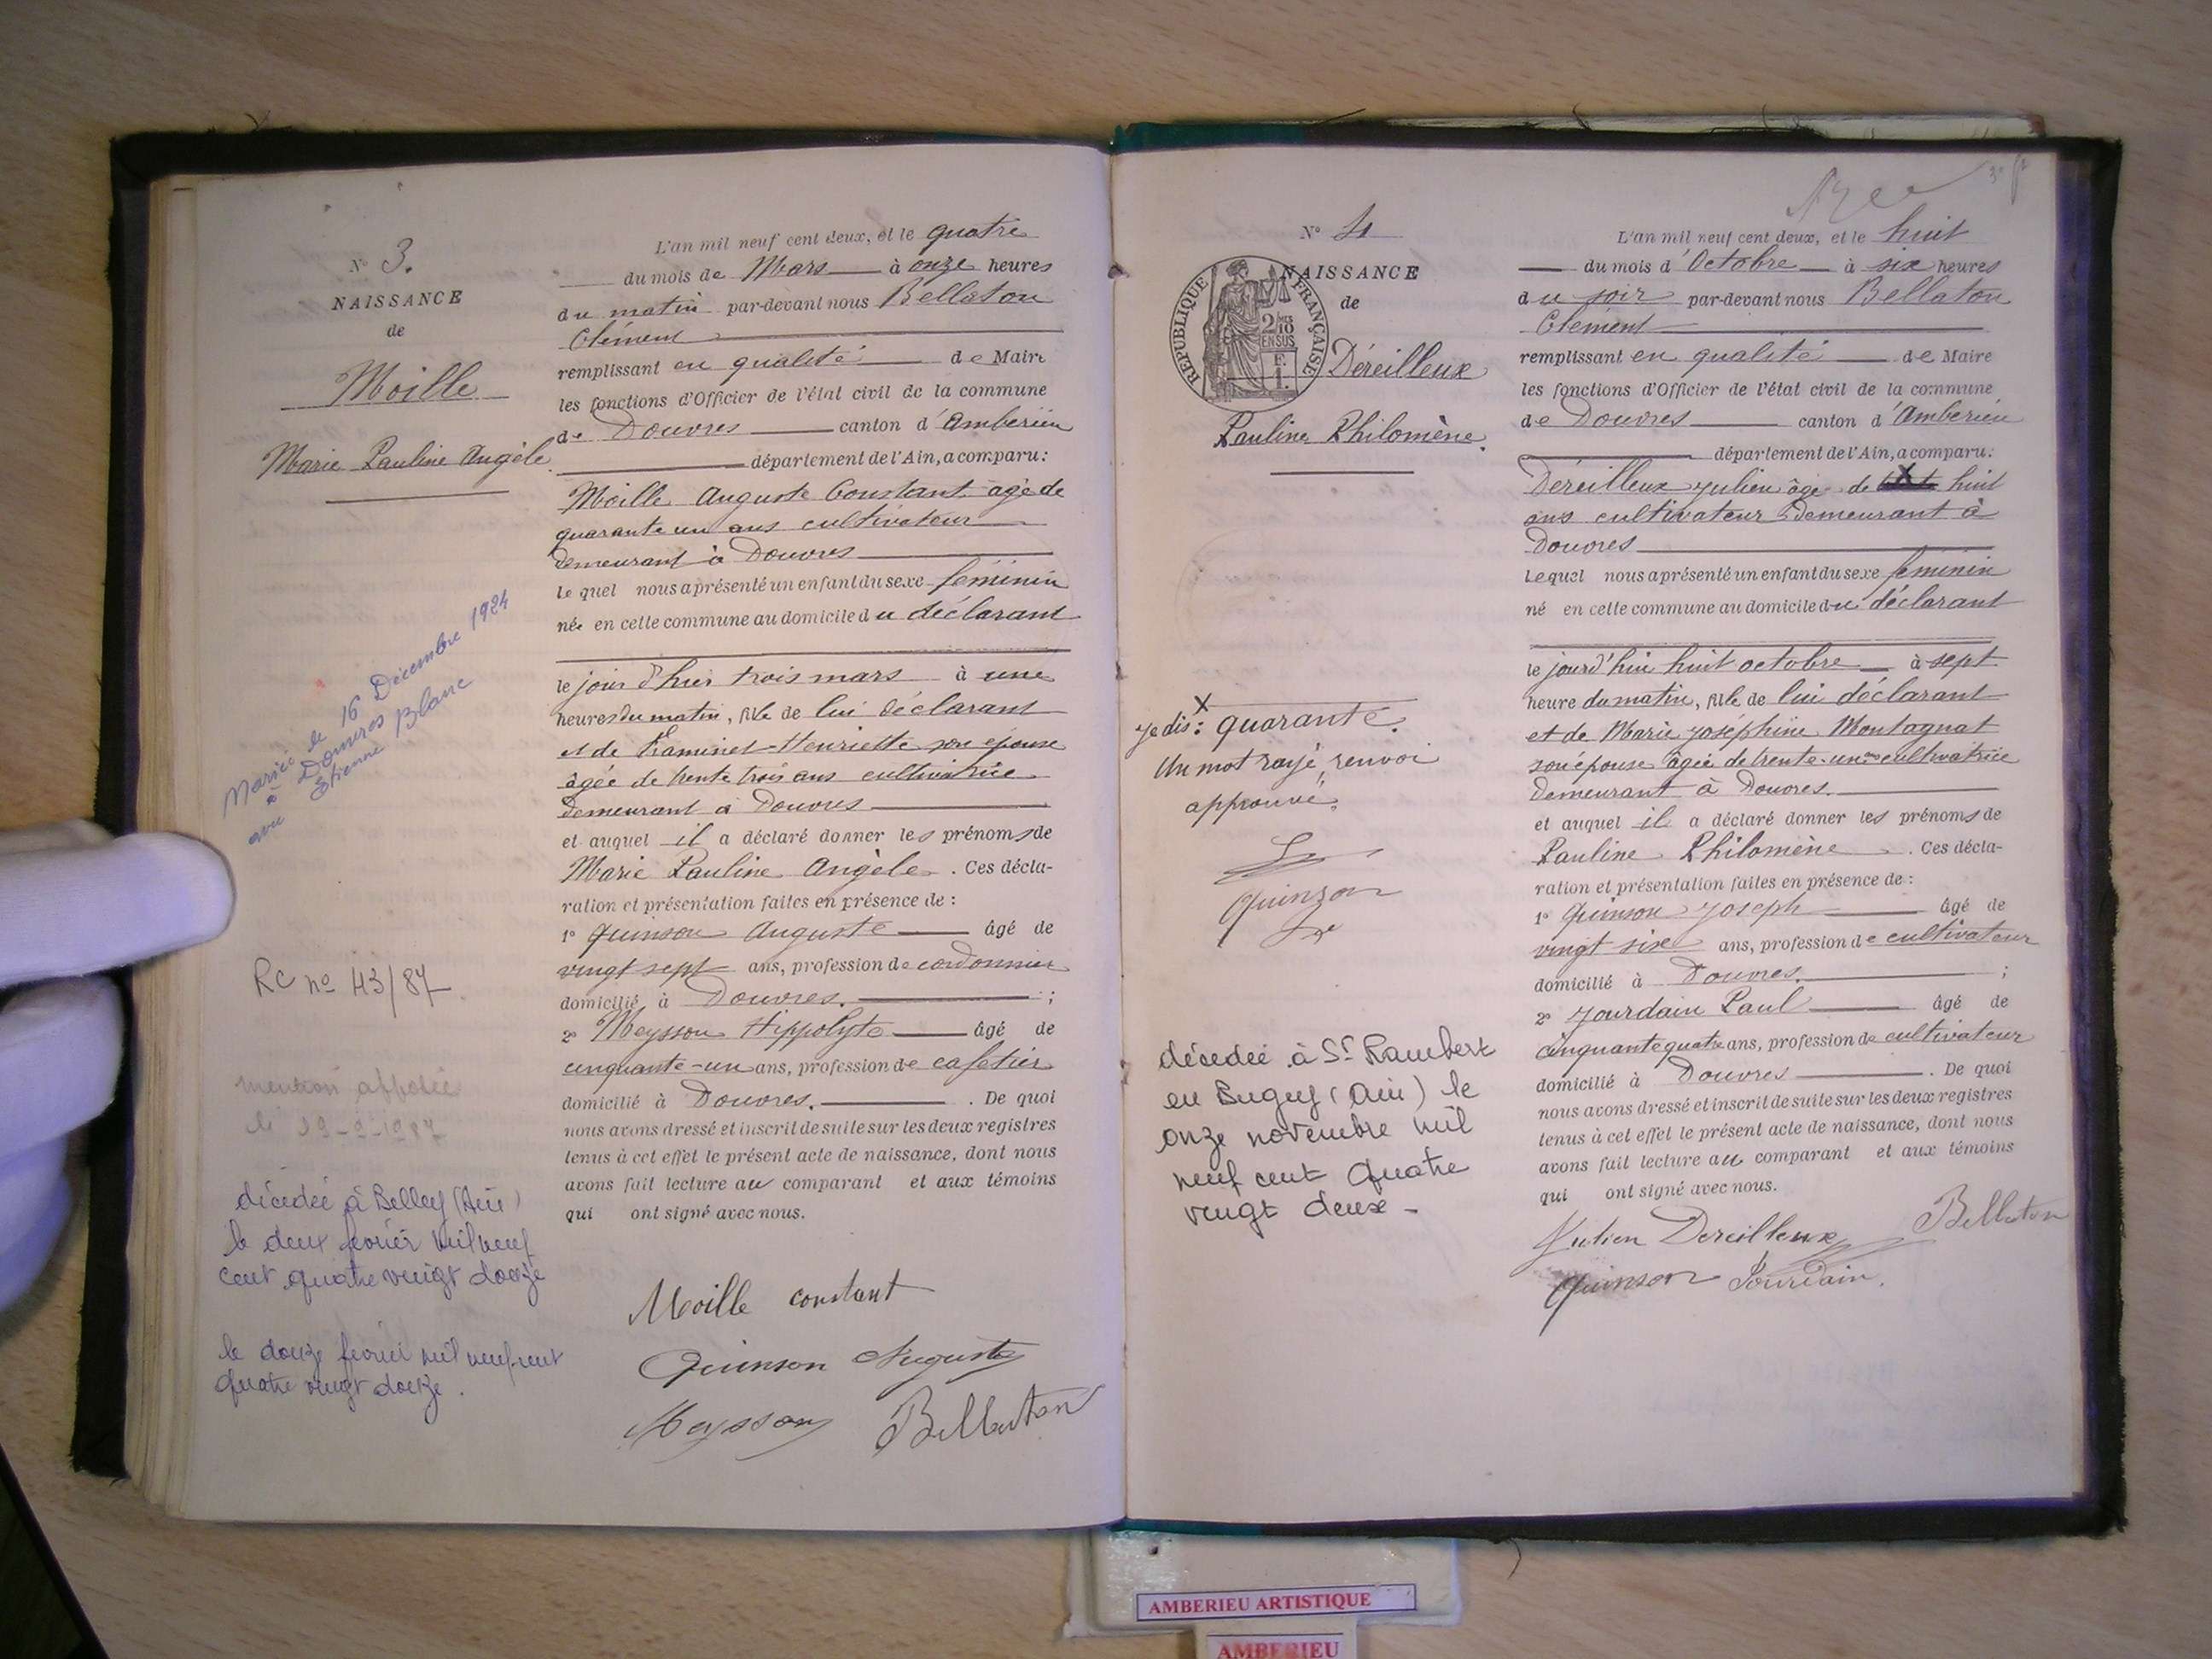 N° 3.
NAISSANCE
de
Moille
Marie Pauline Angèle
Mariée le 16 Décembre 1924
à Douvres
avec Etienne Blanc
RC nº 43/87
mention apposée
le 29-9-1987
décédée à Belley (Ain)
le deux février mil neuf
cent quatre vingt douze
le douze février mil neuf cent
quatre vingt douze.
L'an mil neuf cent deux, et le quatre
du mois de Mars à onze heures
du matin par-devant nous Bellaton
Clément
remplissant en qualité de Maire
les fonctions d'Officier de l'état civil de la commune
de Douvres canton d'Ambérieu
département de l'Ain, a comparu:
Moille Auguste Constant âgé de
quarante un ans cultivateur
demeurant à Douvres
lequel nous a présenté un enfant du sexe féminin
née en cette commune au domicile du déclarant
le jour d'hier trois mars à une
heures du matin, fille de lui déclarant
et de Henriette son épouse
âgée de trente trois ans cultivatrice
demeurant à Douvres
et auquel il a déclaré donner les prénoms de
Marie Pauline Angèle. Ces décla-
ration et présentation faites en présence de :
1º Quinson Auguste âgé de
vingt sept ans, profession de cordonnier
domicilié à Douvres. ;
2º Meysson Hippolyte âgé de
cinquante-un ans, profession de cafetier
domicilié à Douvres. . De quoi
nous avons dressé et inscrit de suite sur les deux registres
tenus à cet effet le présent acte de naissance, dont nous
avons fait lecture au comparant et aux témoins
qui ont signé avec nous.
Moille constant
Quinson Auguste
Meysson Bellaton
N° 4
NAISSANCE
de
RÉPUBLIQUE FRANÇAISE
2/10 EN SUS
F. 1.
Déreilleux
Pauline Philomène.
X
je dis : quarante.
Un mot rayé, renvoi
approuvé.
Quinson
décédée à St Rambert
en Bugey (Ain) le
onze novembre mil
neuf cent quatre
vingt deux -
L'an mil neuf cent deux, et le huit
du mois d'Octobre à six heures
du soir par-devant nous Bellaton
Clément
remplissant en qualité de Maire
les fonctions d'Officier de l'état civil de la commune
de Douvres canton d'Ambérieu
département de l'Ain, a comparu:
Déreilleux Julien âgé de X huit
ans cultivateur demeurant à
Douvres
Lequel nous a présenté un enfant du sexe féminin
né en cette commune au domicile du déclarant
le jourd'hui huit octobre à sept
heure du matin, fille de lui déclarant
et de Marie Joséphine Montagnat
son épouse âgée de trente-un ans cultivatrice
demeurant à Douvres.
et auquel il a déclaré donner les prénoms de
Pauline Philomène . Ces décla-
ration et présentation faites en présence de :
1º Quinson Joseph âgé de
vingt six ans, profession de cultivateur
domicilié à Douvres. ;
2º Jourdain Paul âgé de
cinquante quatre ans, profession de cultivateur
domicilié à Douvres . De quoi
nous avons dressé et inscrit de suite sur les deux registres
tenus à cet effet le présent acte de naissance, dont nous
avons fait lecture au comparant et aux témoins
qui ont signé avec nous.
Julien Dereilleux Bellaton
Quinson Jourdain.
AMBERIEU ARTISTIQUE
AMBERIEU